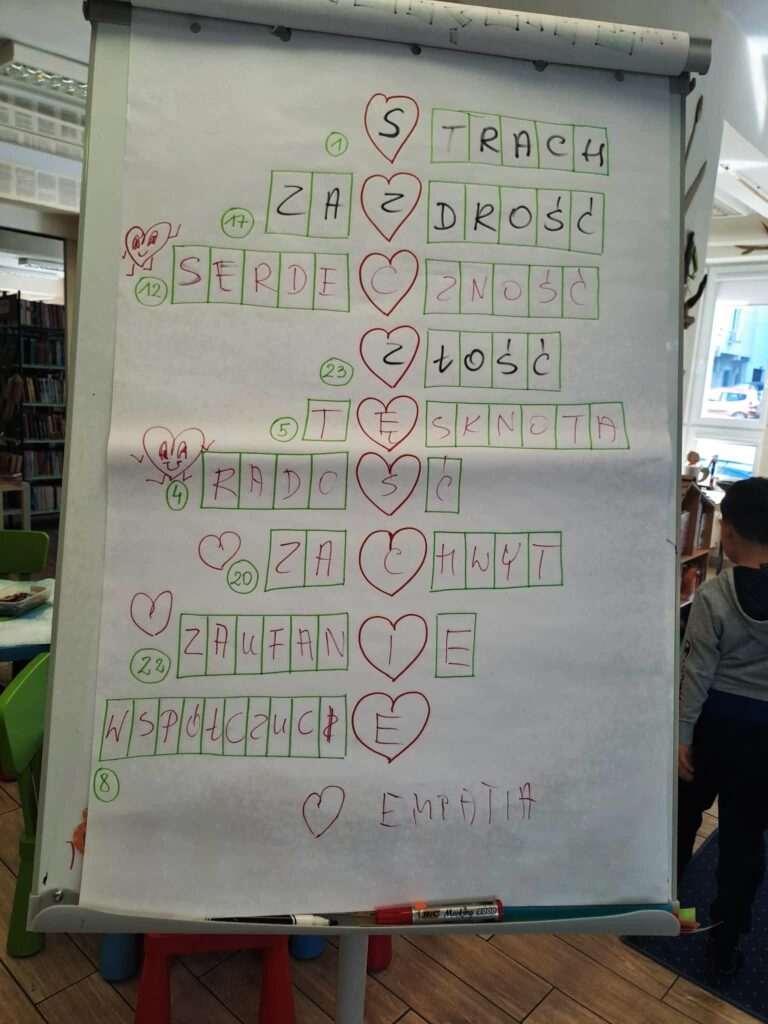 1 STRACH
17 ZAZDROŚĆ
12 SERDECZNOŚĆ
23 ZŁOŚĆ
5 TĘSKNOTA
4 RADOŚĆ
20 ZACHWYT
22 ZAUFANIE
WSPÓŁCZUCIE
8
EMPATIA
BIC Marking 2000